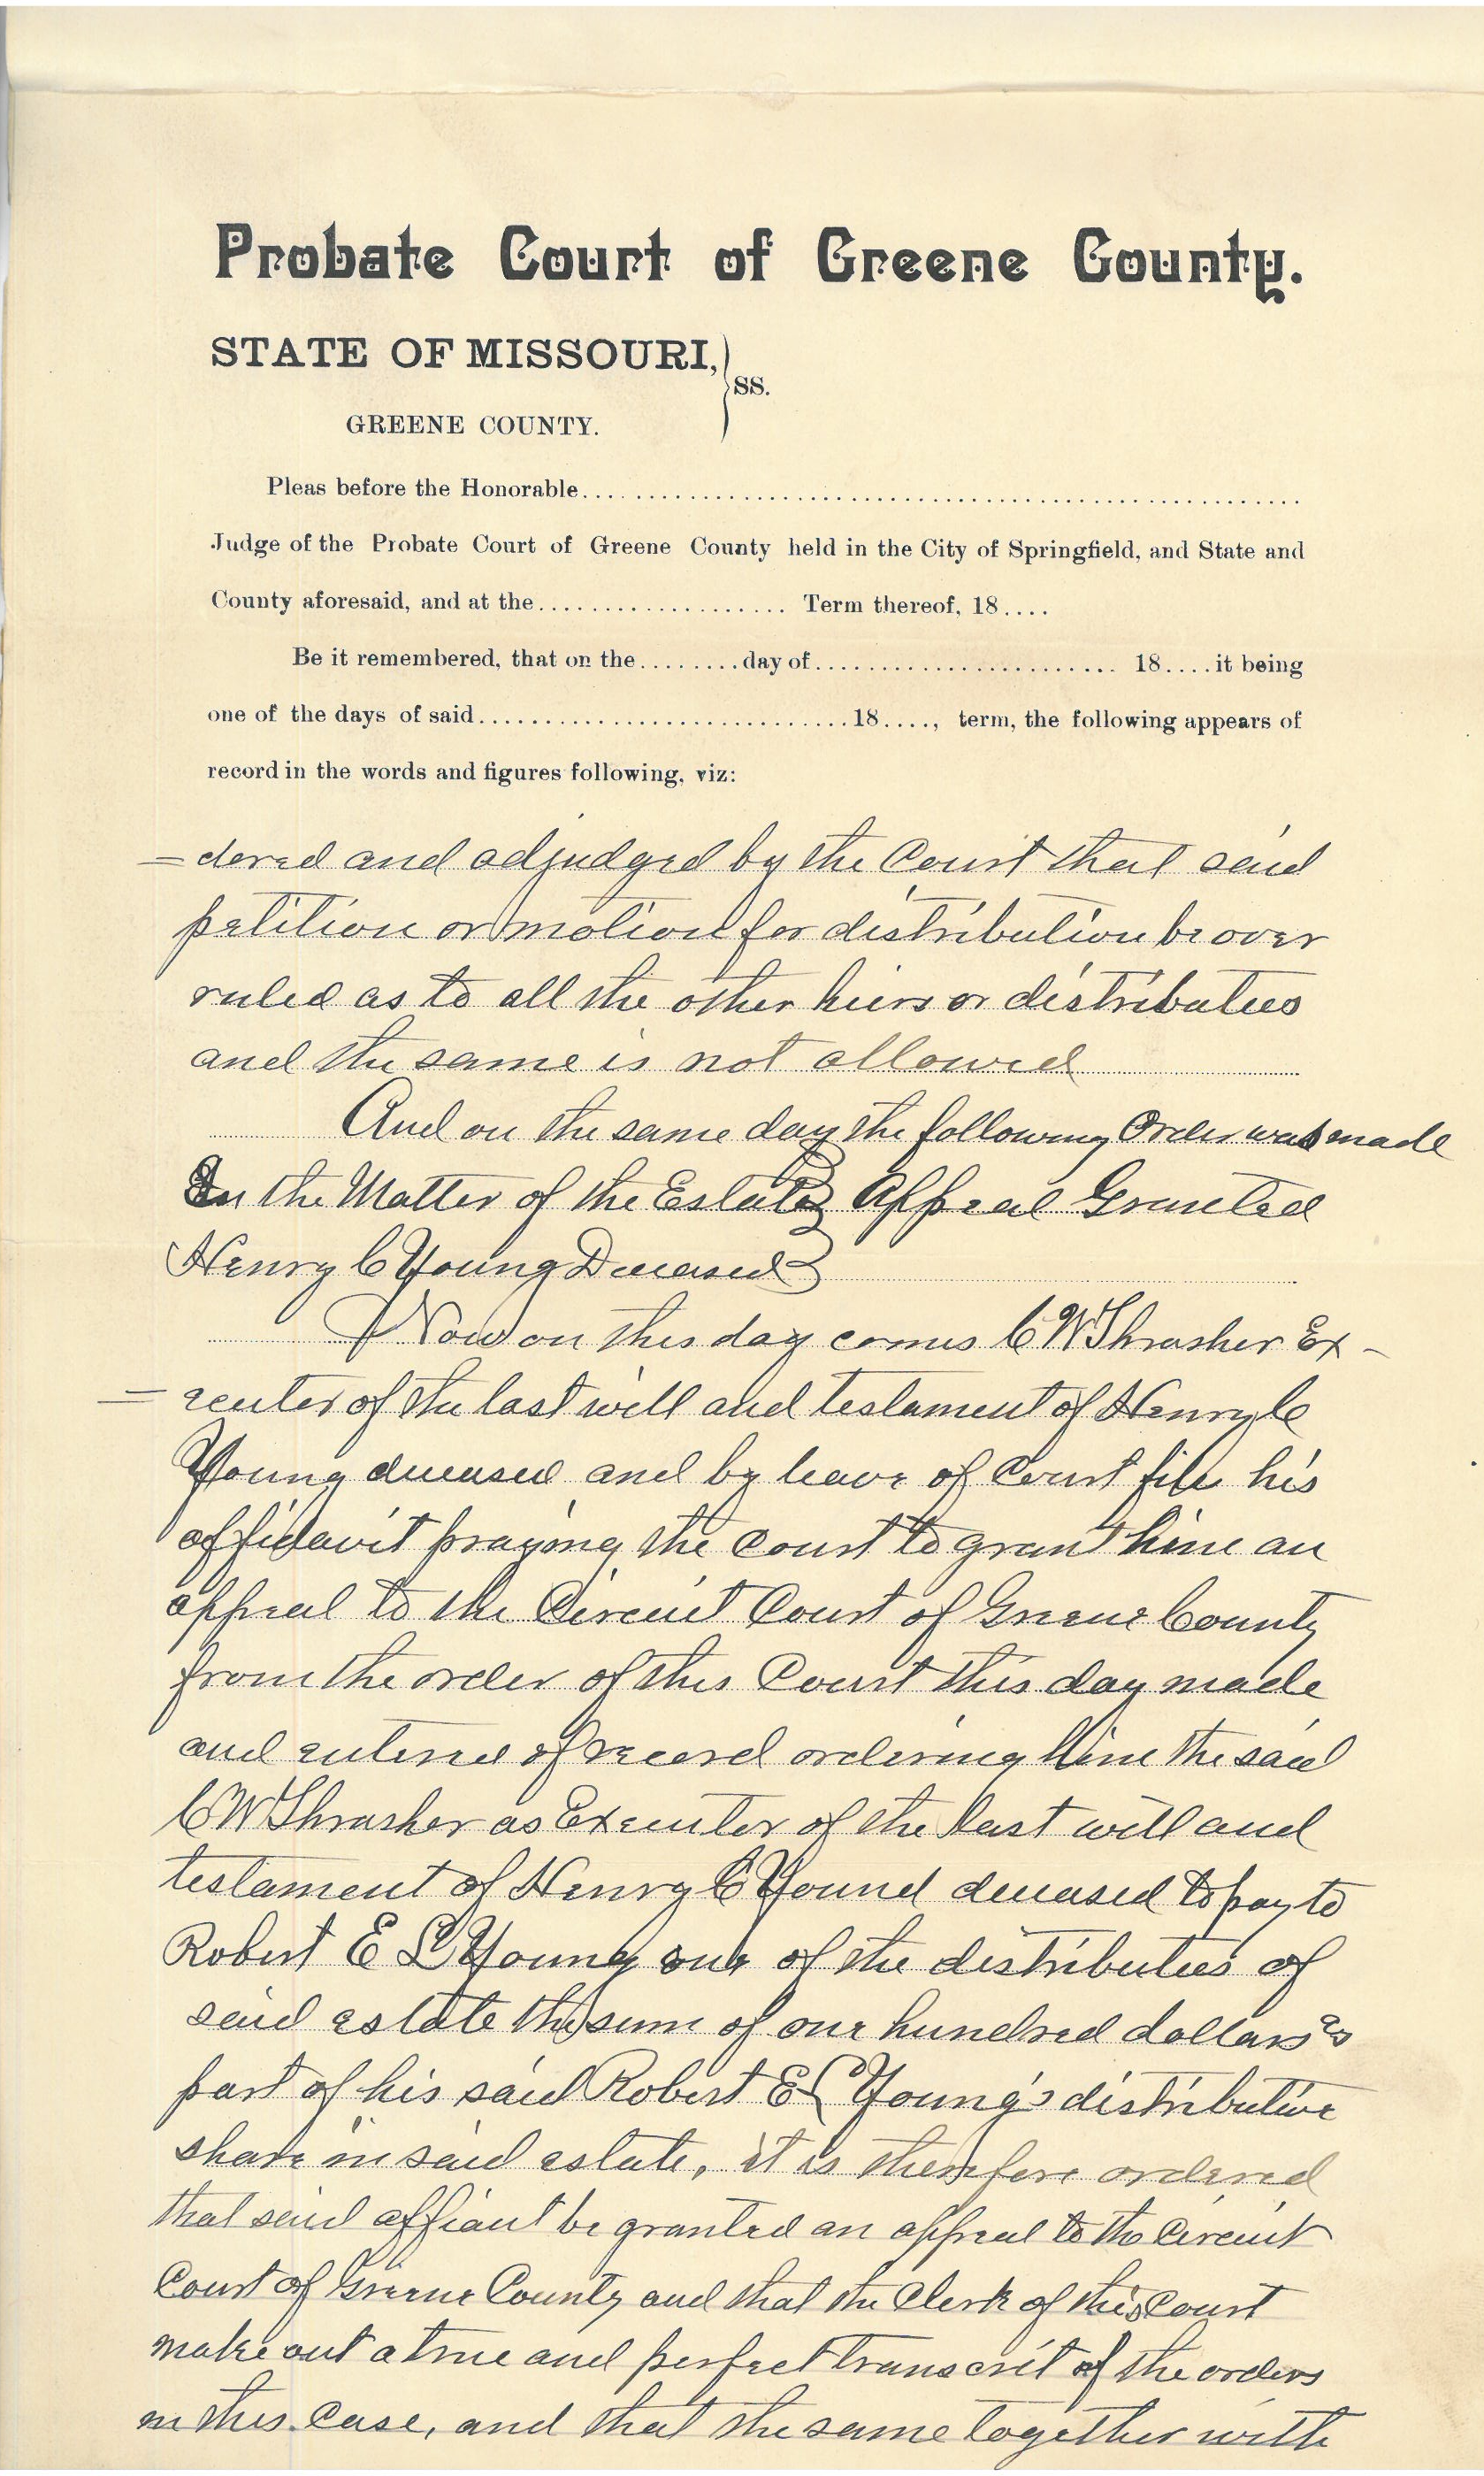 Probate Court of Greene County.
STATE OF MISSOURI,
SS.
GREENE COUNTY.
Pleas before the Honorable............
Judge of the Probate Court of Greene County held in the City of Springfield, and State and
County aforesaid, and at the.................... Term thereof, 18....
Be it remembered, that on the........day of........................ 18....it being
one of the days of said............................18...., term, the following appears of
record in the words and figures following, viz:
=dered and adjudged by the Court that said
petition or motion for distribution be over
ruled as to all the other hiers or distributees
and the same is not allowed
And on the same day the following Order was made
In the Matter of the Estate } Appeal Granted
Henry C Young Deceased }
Now on this day comes C W Thrasher Ex-
=ecutor of the last will and testament of Henry C
Young deceased and by leave of Court file his
affidavit praying the Court to grant him an
appeal to the Circuit Court of Greene County
from the order of this Court this day made
and entered of record ordering him the said
C W Thrasher as Executor of the last will and
testament of Henry C Yound deceased to pay to
Robert E L Young one of the distributees of
said estate the sum of one hundred dollars as
part of his said Robert E L Young's distributive
share in said estate, it is therefore ordered
that said affiant be granted an appeal to the Circuit
Court of Greene County and that the Clerk of this Court
make out a true and perfect transcrit of the orders
in this Case, and that the same together with